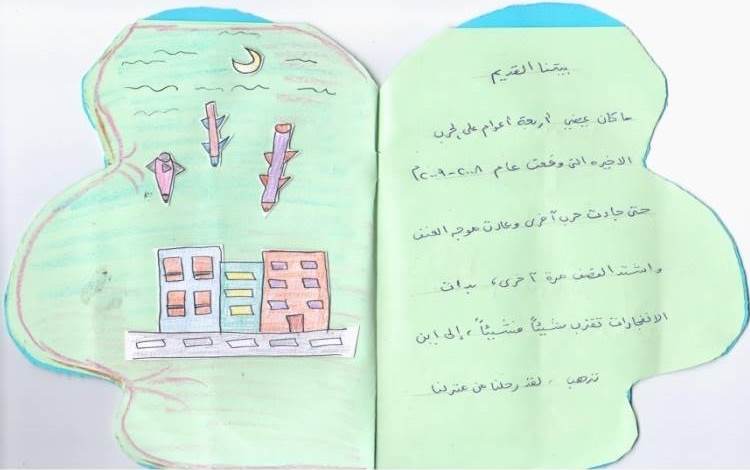 بيتنا القديم
ما كان يمضي أربعة أعوام على الحرب
الاخيره التي وقعت عام ٢٠٠٨-٢٠٠٩م
حتى جاءت حرب آخرى وعادت موجه العنف
واشتد القصف مرة آخرى، بدات
الانفجارات تقترب شيئاً فشيئاً، إلى اين
نذهب، لقد رحلنا من منزلنا